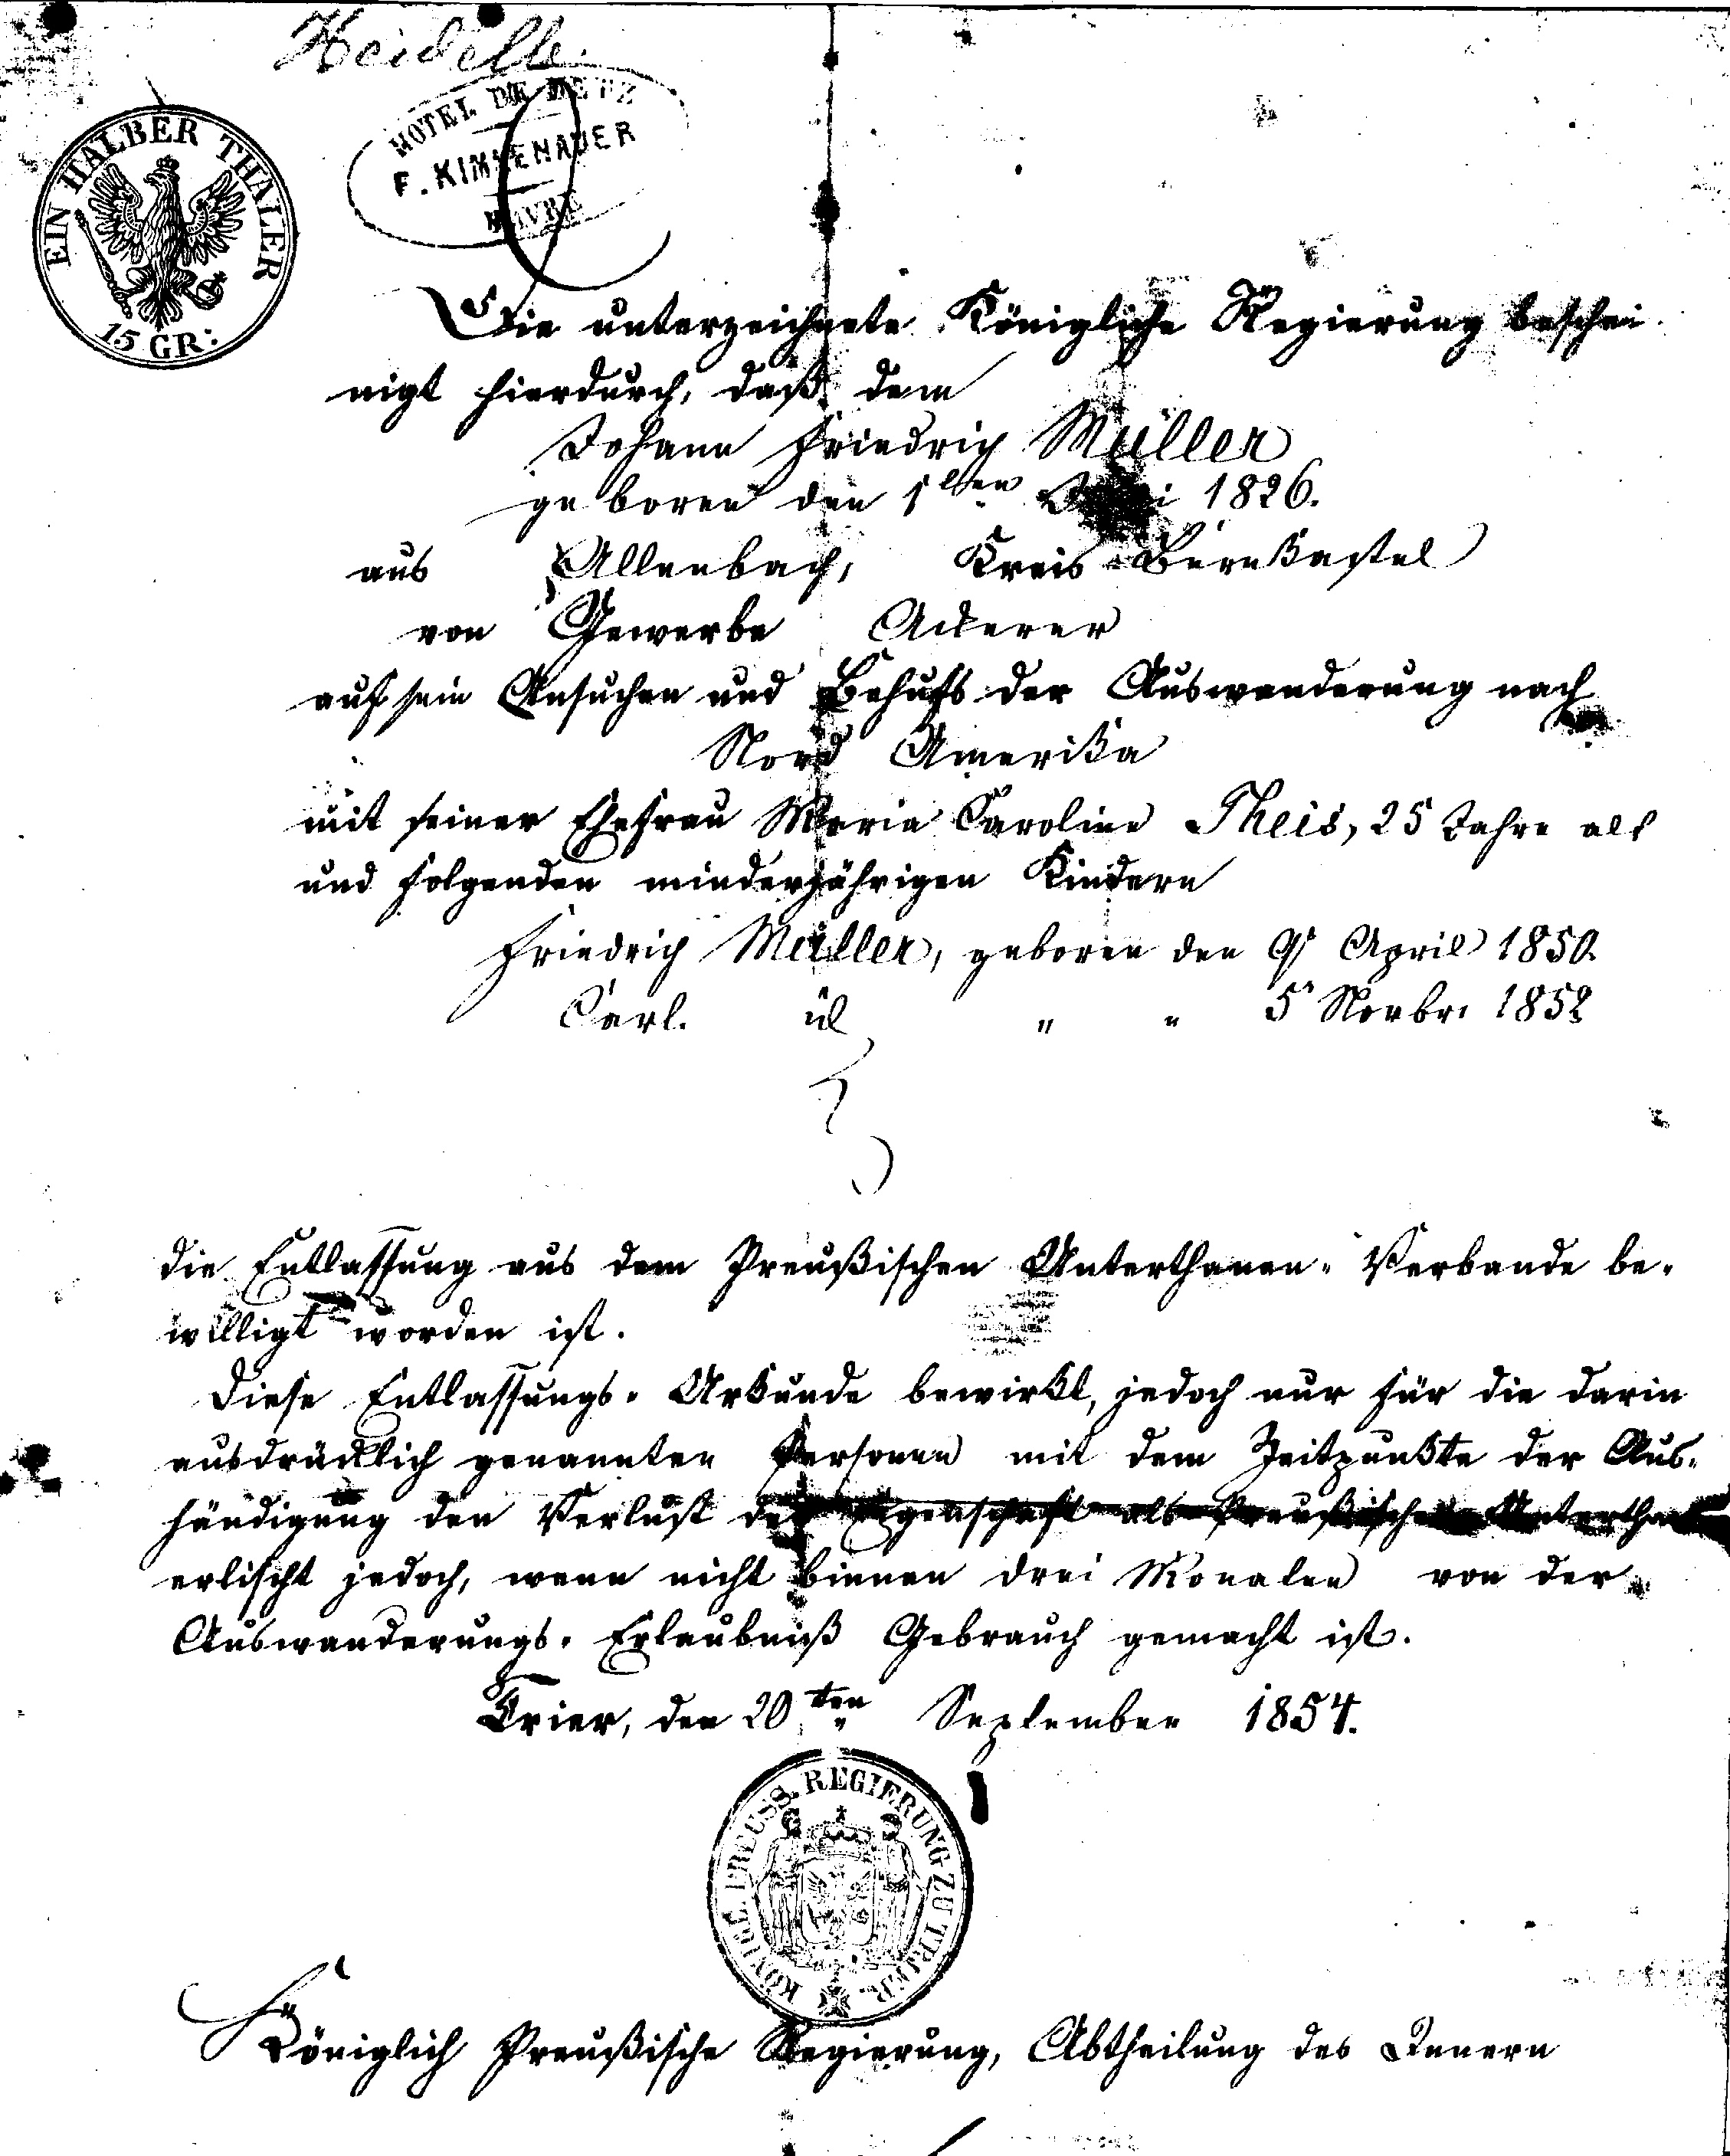 Heidelb
EIN HALBER THALER
15 GR:
HOTEL DE METZ
F. KIMMENAUER
HAVRE
Die unterzeichnete Königliche Regierung beschei
nigt hierdurch, daß dem
Johann Friedrich Müller
geboren den 1ten 1826.
aus Allenbach, Kreis Bernkastel
von Gewerbe Ackerer
auf sein Ansuchen und Behufs der Auswanderung nach
Nord Amerika
mit seiner Ehefrau Maria Caroline Theis, 25 Jahre alt
und folgenden minderjährigen Kindern
Friedrich Müller, geboren den 9 April 1850.
Carl. id " " 5 Novbr. 1852
die Entlassung aus dem Preußischen Unterthanen-Verbande be-
willigt worden ist.
Diese Entlassungs-Urkunde bewirkt, jedoch nur für die darin
ausdrücklich genannten Personen mit dem Zeitpunkte der Aus-
händigung den Verlust der Eigenschaft als Preußischer Unterthan
erlischt jedoch, wenn nicht binnen drei Monaten von der
Auswanderungs-Erlaubniß Gebrauch gemacht ist.
Trier, den 20ten September 1854.
KÖNIGL. PREUSS. REGIERUNG ZU TRIER.
Königlich Preußische Regierung, Abtheilung des Innern